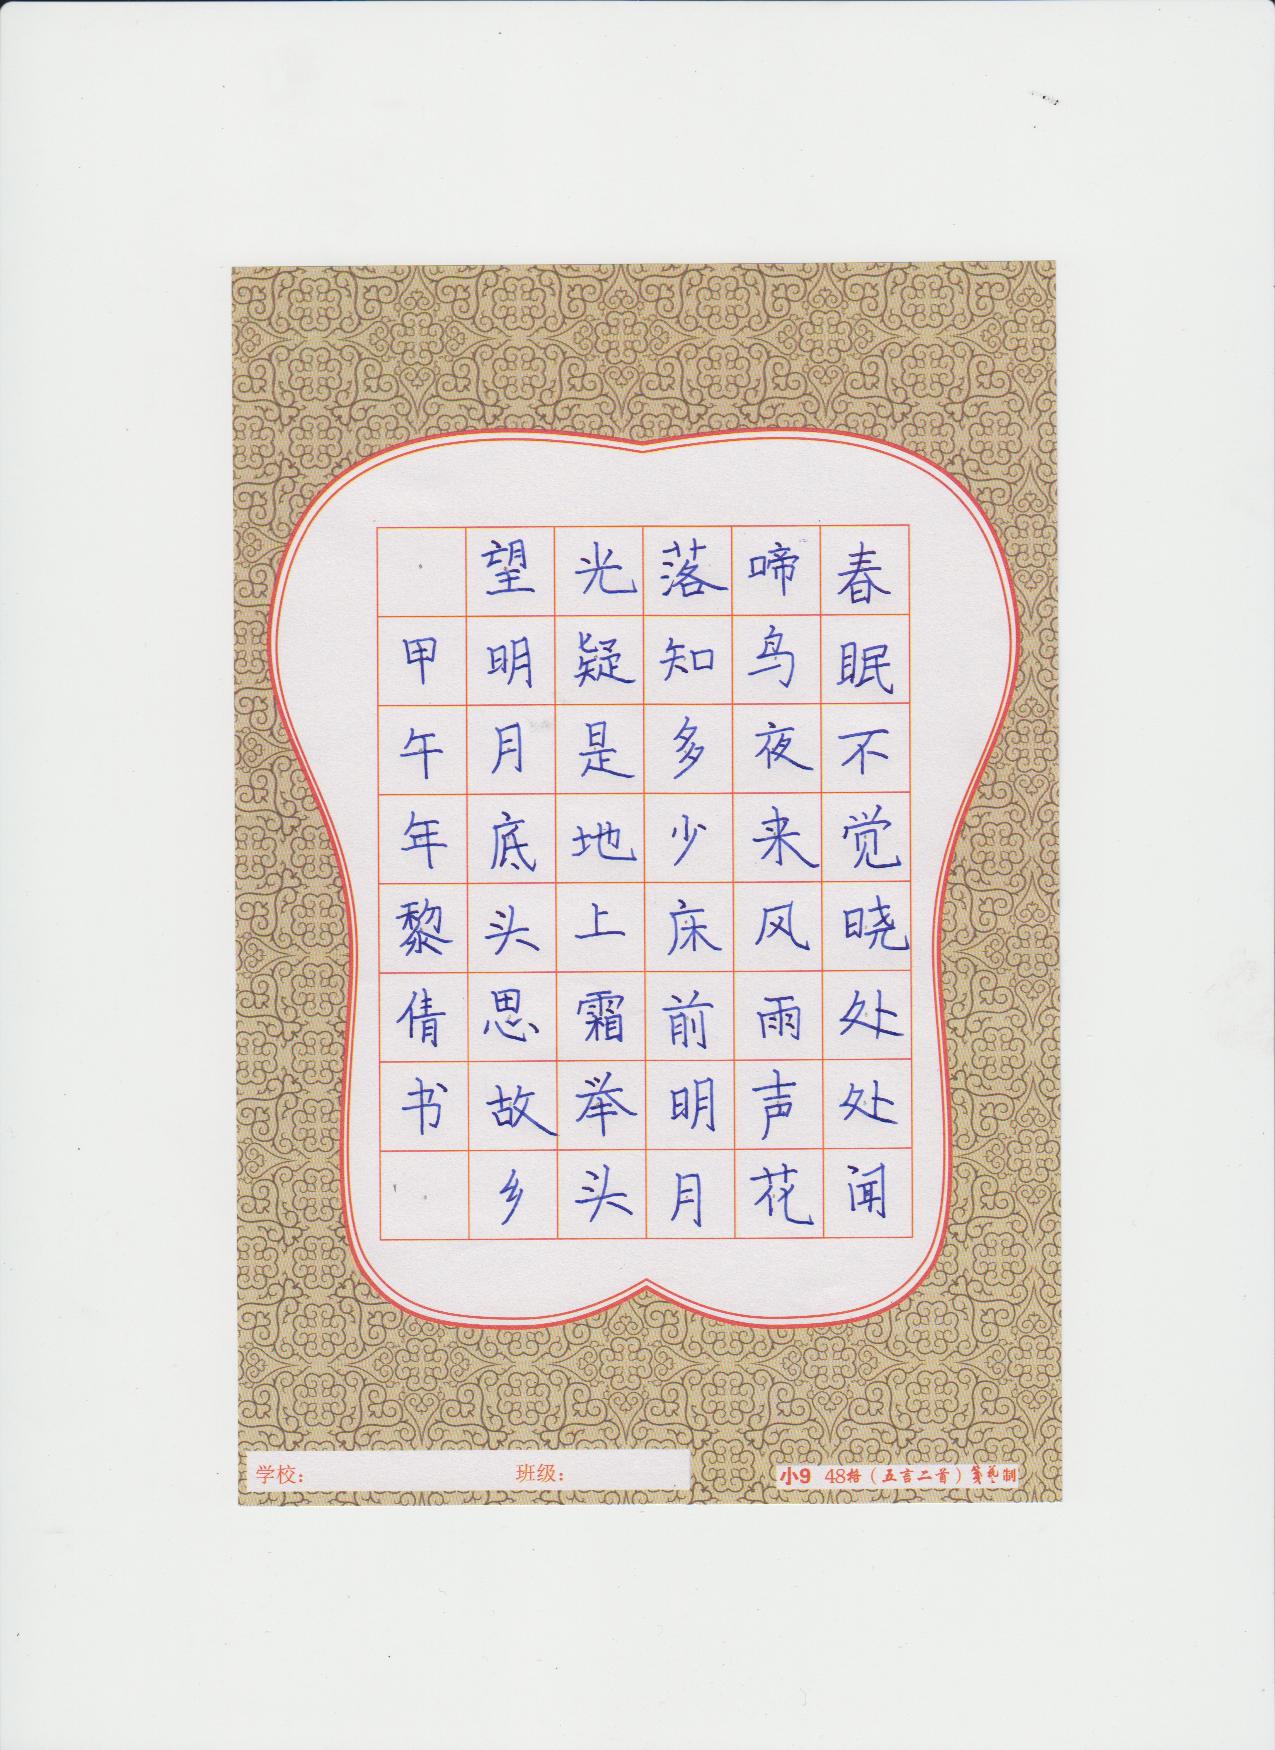 春眠不觉晓处处闻
啼鸟夜来风雨声花
落知多少床前明月
光疑是地上霜举头
望明月底头思故乡
甲午年黎倩书
学校： 班级：
小9 48格（五言二首）制